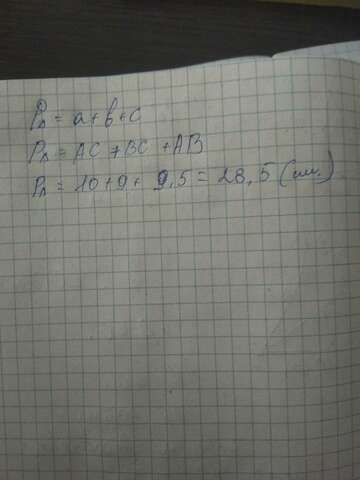 P△ = a+b+c
P△ = AC +BC +AB
P△ = 10+9+ 9,5 = 28,5 (см.)